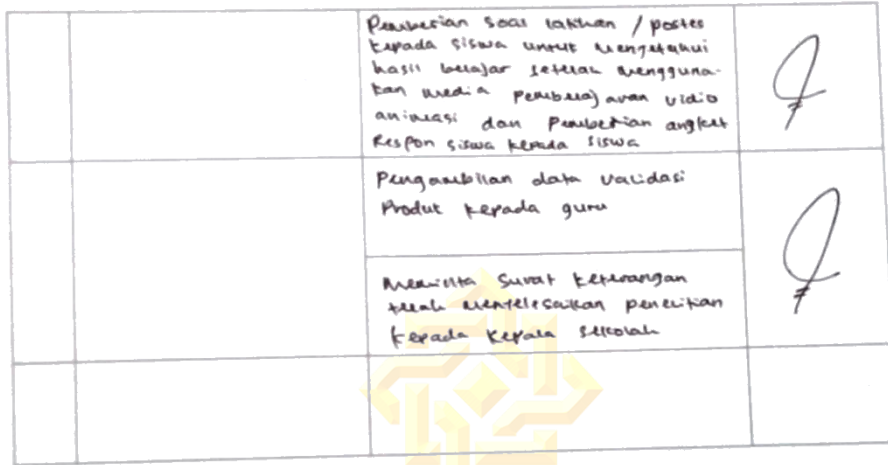 Pemberian soal latihan / postes
kepada siswa untuk mengetahui
hasil belajar setelah mengguna-
kan media pembelajaran vidio
animasi dan Pemberian angket
Respon siswa kepada siswa
Pengambilan data validasi
Produk kepada guru
Meminta Surat keterangan
telah menyelesaikan penelitian
kepada kepala sekolah